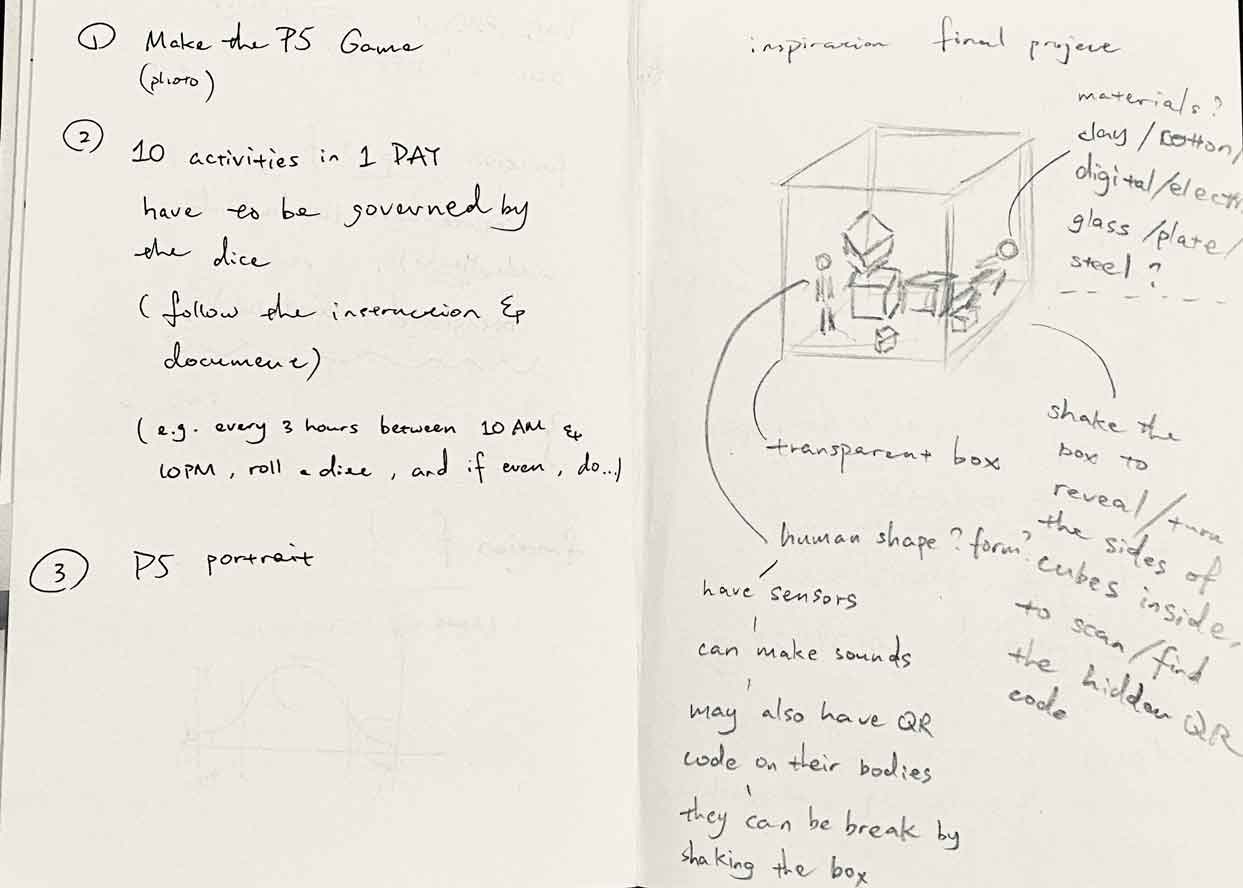 ① Make the P5 Game
(photo)
② 10 activities in 1 DAY
have to be governed by
the dice
(follow the instruction &
document)
(e.g. every 3 hours between 10 AM &
10PM, roll a dice, and if even, do...)
③ P5 portrait
inspiration final project
materials?
clay / cotton/
digital/elect
glass /plate/
steel?
transparent box
shake the
box to
reveal/turn
the sides of
cubes inside,
to scan/find
the hidden QR
code
human shape? form?
have sensors
can make sounds
may also have QR
code on their bodies
they can be break by
shaking the box